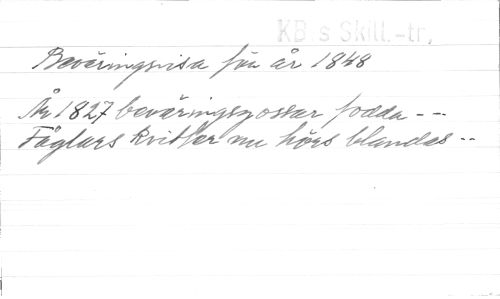 KB:s Skill.-tr,
Beväringsvisa för år 1848
År 1827 beväringsgossar födda ---
Fåglars kvitter nu hörs blandas --